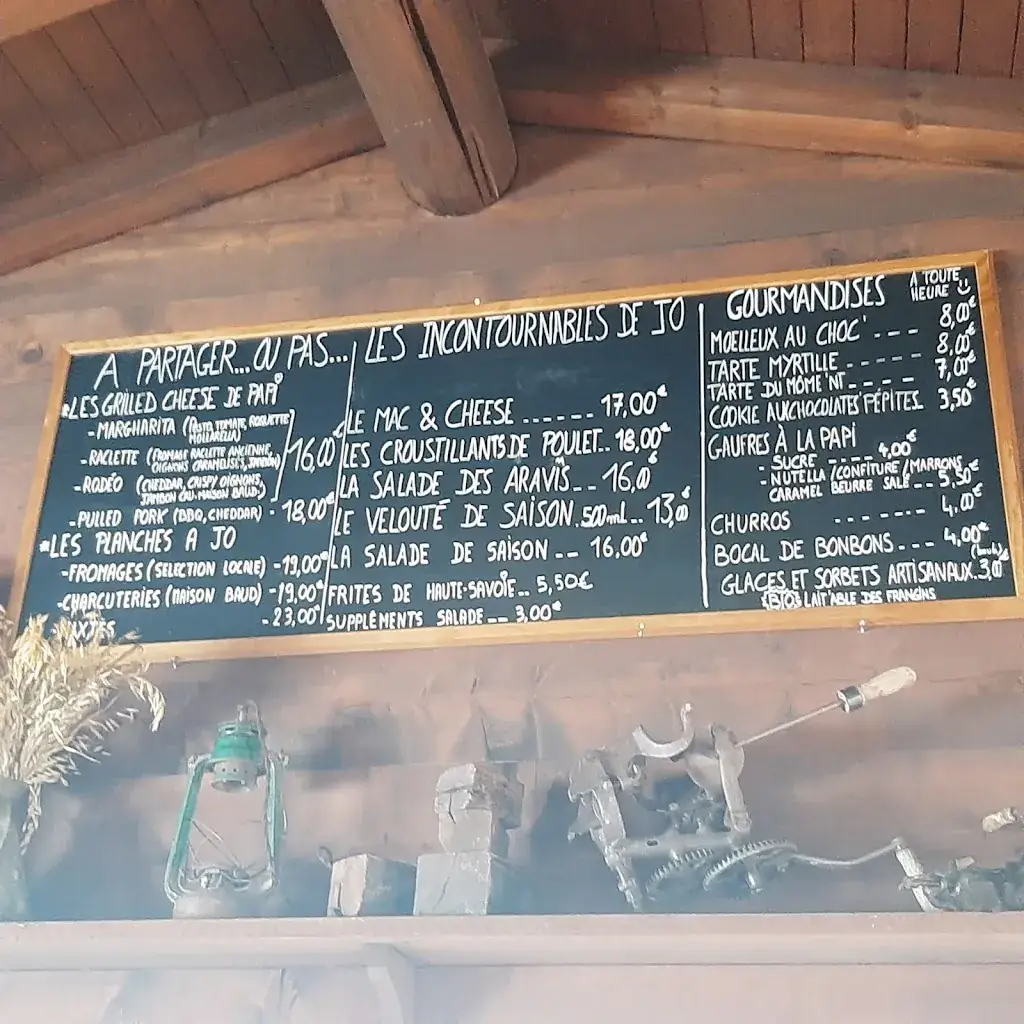 A PARTAGER...OU PAS...
*LES GRILLED CHEESE DE PAPI
-MARGHARITA (PESTO, TOMATE, ROQUETTE
MOZZARELLA)
-RACLETTE (FROMAGE RACLETTE ANCIENNE,
OIGNONS CARAMELISÉS, JAMBON)
16,00€
-RODÉO (CHEDDAR, CRISPY OIGNONS,
JAMBON CRU MAISON BAUD)
-PULLED PORK (BBQ, CHEDDAR) - 18,00€
*LES PLANCHES A JO
-FROMAGES (SELECTION LOCALE) -19,00€
-CHARCUTERIES (MAISON BAUD) -19,00€
-MIXTES -23,00€
LES INCONTOURNABLES DE JO
LE MAC & CHEESE ...... 17,00€
LES CROUSTILLANTS DE POULET.. 18,00€
LA SALADE DES ARAVIS... 16,00€
LE VELOUTÉ DE SAISON. 500mL.. 13,00€
LA SALADE DE SAISON -- 16,00€
FRITES DE HAUTE-SAVOIE.. 5,50€
SUPPLÉMENTS SALADE -- 3,00€
GOURMANDISES A TOUTE
HEURE
MOELLEUX AU CHOC' --- 8,00€
TARTE MYRTILLE ----- 8,00€
TARTE DU MÔME'NT ---- 7,00€
COOKIE AUX CHOCOLATS PÉPITES 3,50€
GAUFRES À LA PAPI
- SUCRE ----- 4,00€
- NUTELLA /CONFITURE /MARRONS
CARAMEL BEURRE SALÉ... 5,50€
CHURROS ------ 4,00€
BOCAL DE BONBONS... 4,00€
(boule)
GLACES ET SORBETS ARTISANAUX. 3,00€
(BIO) LAIT'ABLE DES FRANGINS